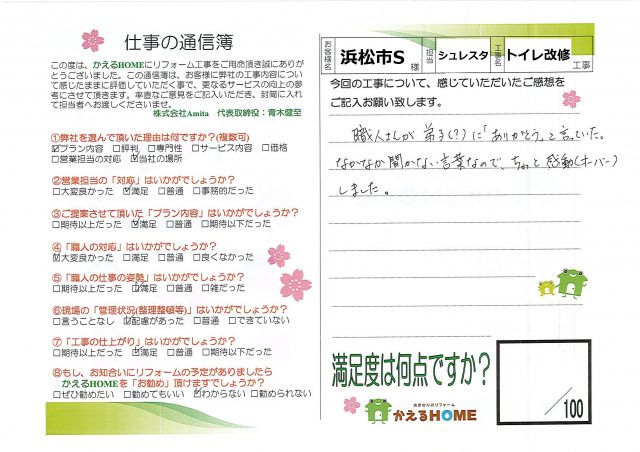 仕事の通信簿
この度は、かえるHOMEにリフォーム工事をご用命頂き誠にありが
とうございました。この通信簿は、お客様に弊社の工事内容につい
て感じたままに評価していただく事で、更なるサービスの向上の参
考にさせて頂きます。率直なご意見をご記入いただき、封筒に入れ
て担当者へお渡しくださいませ。
株式会社Amita 代表取締役：青木健至
①弊社を選んで頂いた理由は何ですか?(複数可)
☑プラン内容 □評判 □専門性 □サービス内容 □価格
□営業担当の対応 ☑当社の場所
②営業担当の「対応」はいかがでしょうか?
□大変良かった ☑満足 □普通 □事務的だった
③ご提案させて頂いた「プラン内容」はいかがでしょうか?
□期待以上だった ☑満足 □普通 □期待以下だった
④「職人の対応」はいかがでしょうか?
☑大変良かった □満足 □普通 □良くなかった
⑤「職人の仕事の姿勢」はいかがでしょうか?
□期待以上だった ☑満足 □普通 □雑だった
⑥現場の「管理状況(整理整頓等)」はいかがでしょうか?
□言うことなし ☑配慮があった □普通 □できていない
⑦「工事の仕上がり」はいかがでしょうか?
□期待以上だった ☑満足 □普通 □期待以下だった
⑧もし、お知合いにリフォームの予定がありましたら
かえるHOMEを「お勧め」頂けますでしょうか?
□ぜひ勧めたい □勧めてもいい ☑わからない □勧められない
お客様名 浜松市S 様 担当 シュレスタ 工事名 トイレ改修 工事
今回の工事について、感じていただいたご感想を
ご記入お願い致します。
職人さんが弟子(?)に「ありがとう」と言っていた。
なかなか聞かない言葉なので、ちょっと感動(オーバー)
しました。
満足度は何点ですか?
/100
水まわりのリフォーム
かえるHOME